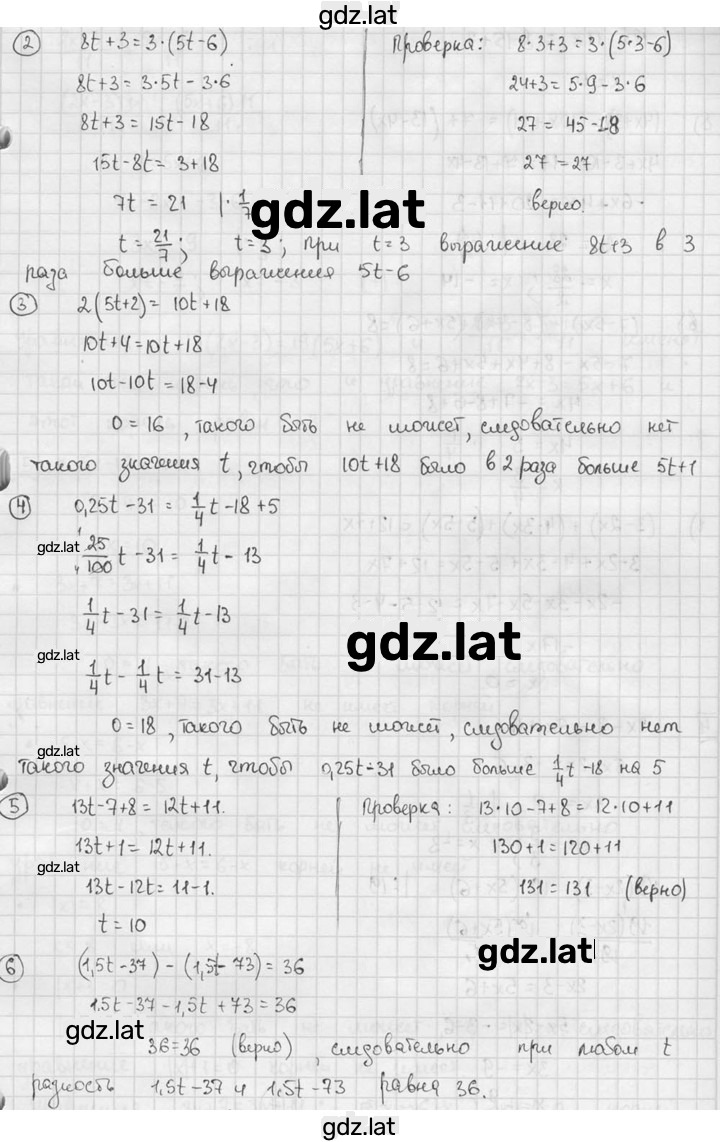 gdz.lat
2 8t+3=3·(5t-6) Проверка: 8·3+3=3·(5·3-6)
8t+3=3·5t-3·6 24+3=5·9-3·6
8t+3=15t-18 27=45-18
15t-8t=3+18 27=27
7t=21 |·1/7 верно.
gdz.lat
t=21/7; t=3; при t=3 выражение 8t+3 в 3
раза больше выражения 5t-6
3 2(5t+2)=10t+18
10t+4=10t+18
10t-10t=18-4
0=16, такого быть не может, следовательно нет
такого значения t, чтобы 10t+18 было в 2 раза больше 5t+1
4 0,25t-31=1/4t-18+5
gdz.lat
25/100t-31=1/4t-13
1/4t-31=1/4t-13
gdz.lat
gdz.lat
1/4t-1/4t=31-13
0=18, такого быть не может, следовательно нет
gdz.lat
такого значения t, чтобы 0,25t-31 было больше 1/4t-18 на 5
5 13t-7+8=12t+11. Проверка: 13·10-7+8=12·10+11
13t+1=12t+11. 130+1=120+11
gdz.lat
13t-12t=11-1. 131=131 (верно)
t=10
gdz.lat
6 (1,5t-37)-(1,5t-73)=36
1.5t-37-1,5t+73=36
gdz.lat
36=36 (верно), следовательно при любом t
разность 1,5t-37 и 1,5t-73 равна 36.
gdz.lat